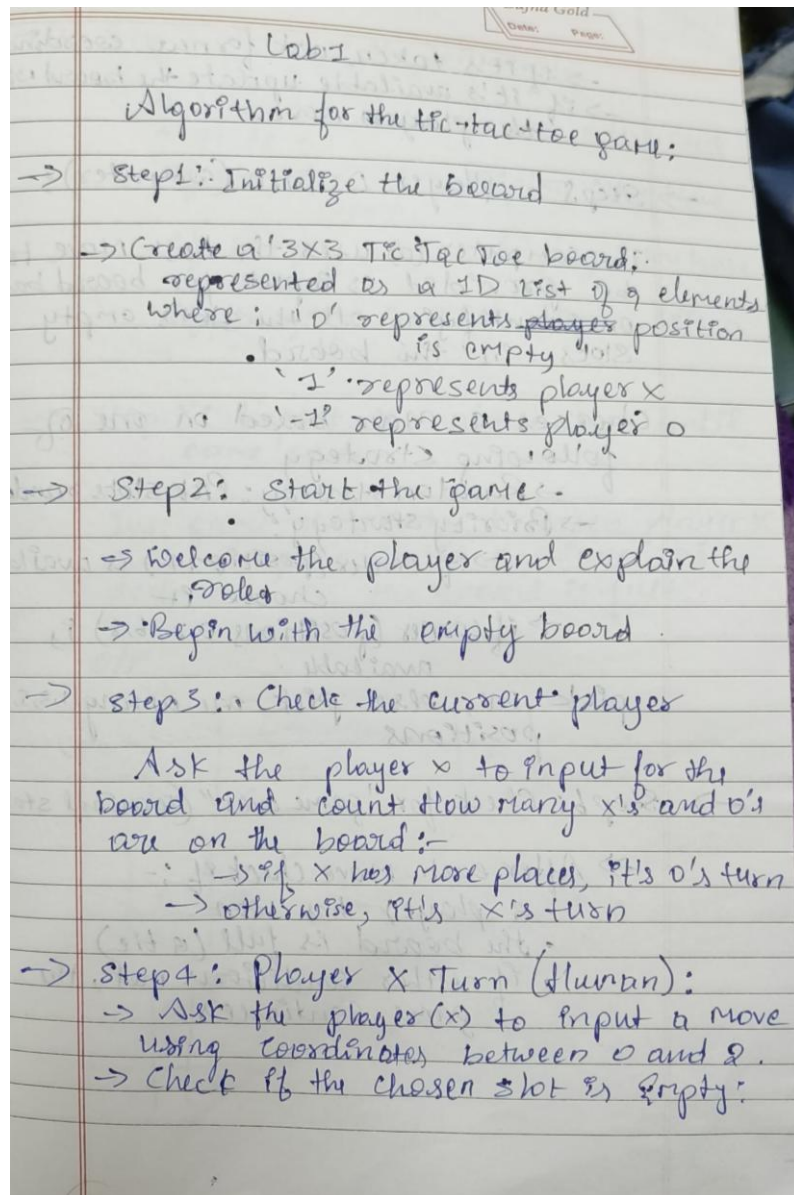 Gold
Date: Page:
Lab:1
Algorithm for the tic-tac-toe game:
→ Step1: Initialize the board
→ Create a 3x3 Tic Tac Toe board,
represented as a 1D List of 9 elements
where: '0' represents player position
is empty
'1' represents player x
'-1' represents player o
→ Step2: Start the game.
→ Welcome the player and explain the
roles
→ Begin with the empty board.
→ step 3: Check the current player
Ask the player x to input for the
board and count How many x's and o's
are on the board:-
→ if x has more places, it's o's turn
→ otherwise, it's x's turn
→ Step4: Player X Turn (Human):
→ Ask the player (x) to input a move
using coordinates between 0 and 2.
→ Check if the chosen slot is Empty: